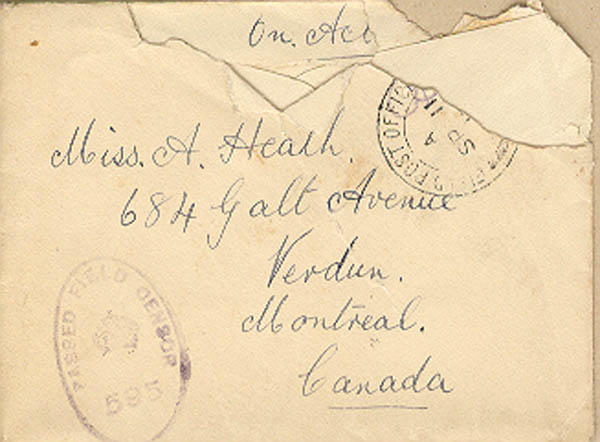 On. Act
FIELD POST OFFICE
11
SP
Miss. A. Heath.
684 Galt Avenue
Verdun.
Montreal.
Canada
PASSED FIELD CENSOR
595